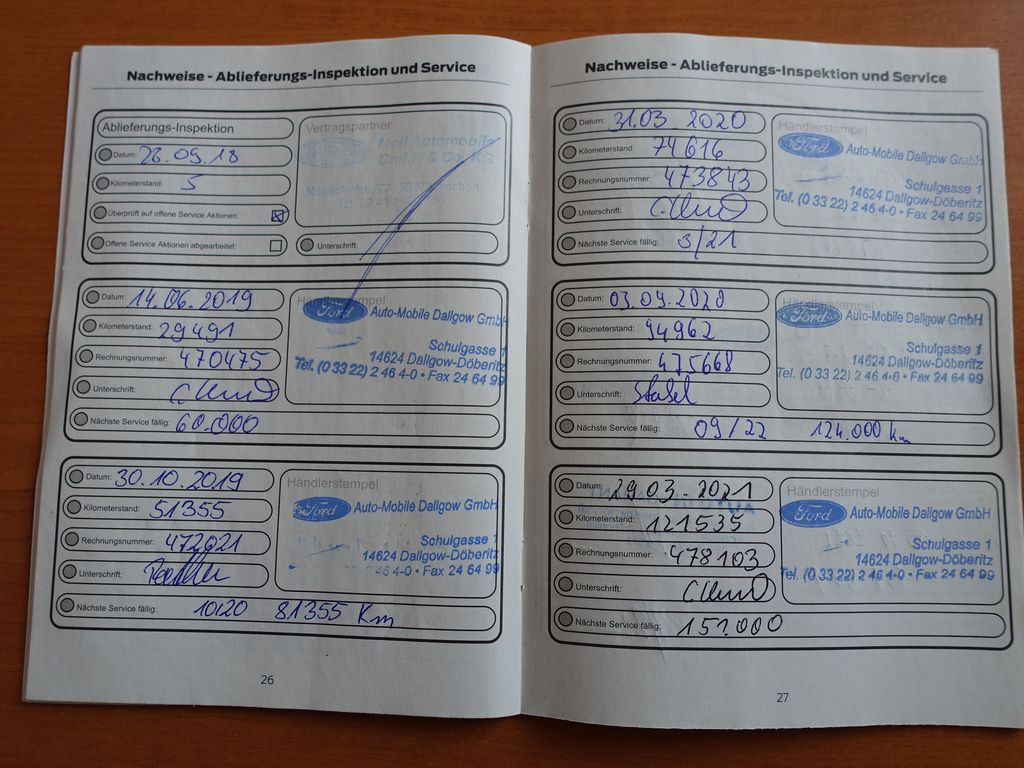 Nachweise - Ablieferungs-Inspektion und Service
Ablieferungs-Inspektion
Datum: 28.09.18
Kilometerstand: 5
Überprüft auf offene Service Aktionen:
Offene Service Aktionen abgearbeitet:
Vertragspartner
Moll Automobile
GmbH & Co. KG
Unterschrift:
Datum: 14.06.2019
Kilometerstand: 29491
Rechnungsnummer: 470475
Unterschrift:
Nächste Service fällig: 60.000
Händlerstempel
Ford Auto-Mobile Dallgow GmbH
Schulgasse 1
14624 Dallgow-Döberitz
Tel. (0 33 22) 2 46 4-0 • Fax 24 64 99
Datum: 30.10.2019
Kilometerstand: 51355
Rechnungsnummer: 472921
Unterschrift:
Nächste Service fällig: 10/20 81355 Km
Händlerstempel
Ford Auto-Mobile Dallgow GmbH
Schulgasse 1
14624 Dallgow-Döberitz
46 4-0 • Fax 24 64 99
26
Nachweise - Ablieferungs-Inspektion und Service
Datum: 31.03 2020
Kilometerstand: 74616
Rechnungsnummer: 473843
Unterschrift:
Nächste Service fällig: 3/21
Händlerstempel
Ford Auto-Mobile Dallgow GmbH
Schulgasse 1
14624 Dallgow-Döberitz
Tel. (0 33 22) 2 46 4-0 • Fax 24 64 99
Datum: 03.09.2020
Kilometerstand: 94962
Rechnungsnummer: 475668
Unterschrift:
Nächste Service fällig: 09/22 124.000 km
Händlerstempel
Ford Auto-Mobile Dallgow GmbH
Schulgasse 1
14624 Dallgow-Döberitz
Tel. (0 33 22) 2 46 4-0 • Fax 24 64 99
Datum: 29.03.2021
Kilometerstand: 121535
Rechnungsnummer: 478103
Unterschrift:
Nächste Service fällig: 151.000
Händlerstempel
Ford Auto-Mobile Dallgow GmbH
Schulgasse 1
14624 Dallgow-Döberitz
Tel. (0 33 22) 2 46 4-0 • Fax 24 64 99
27